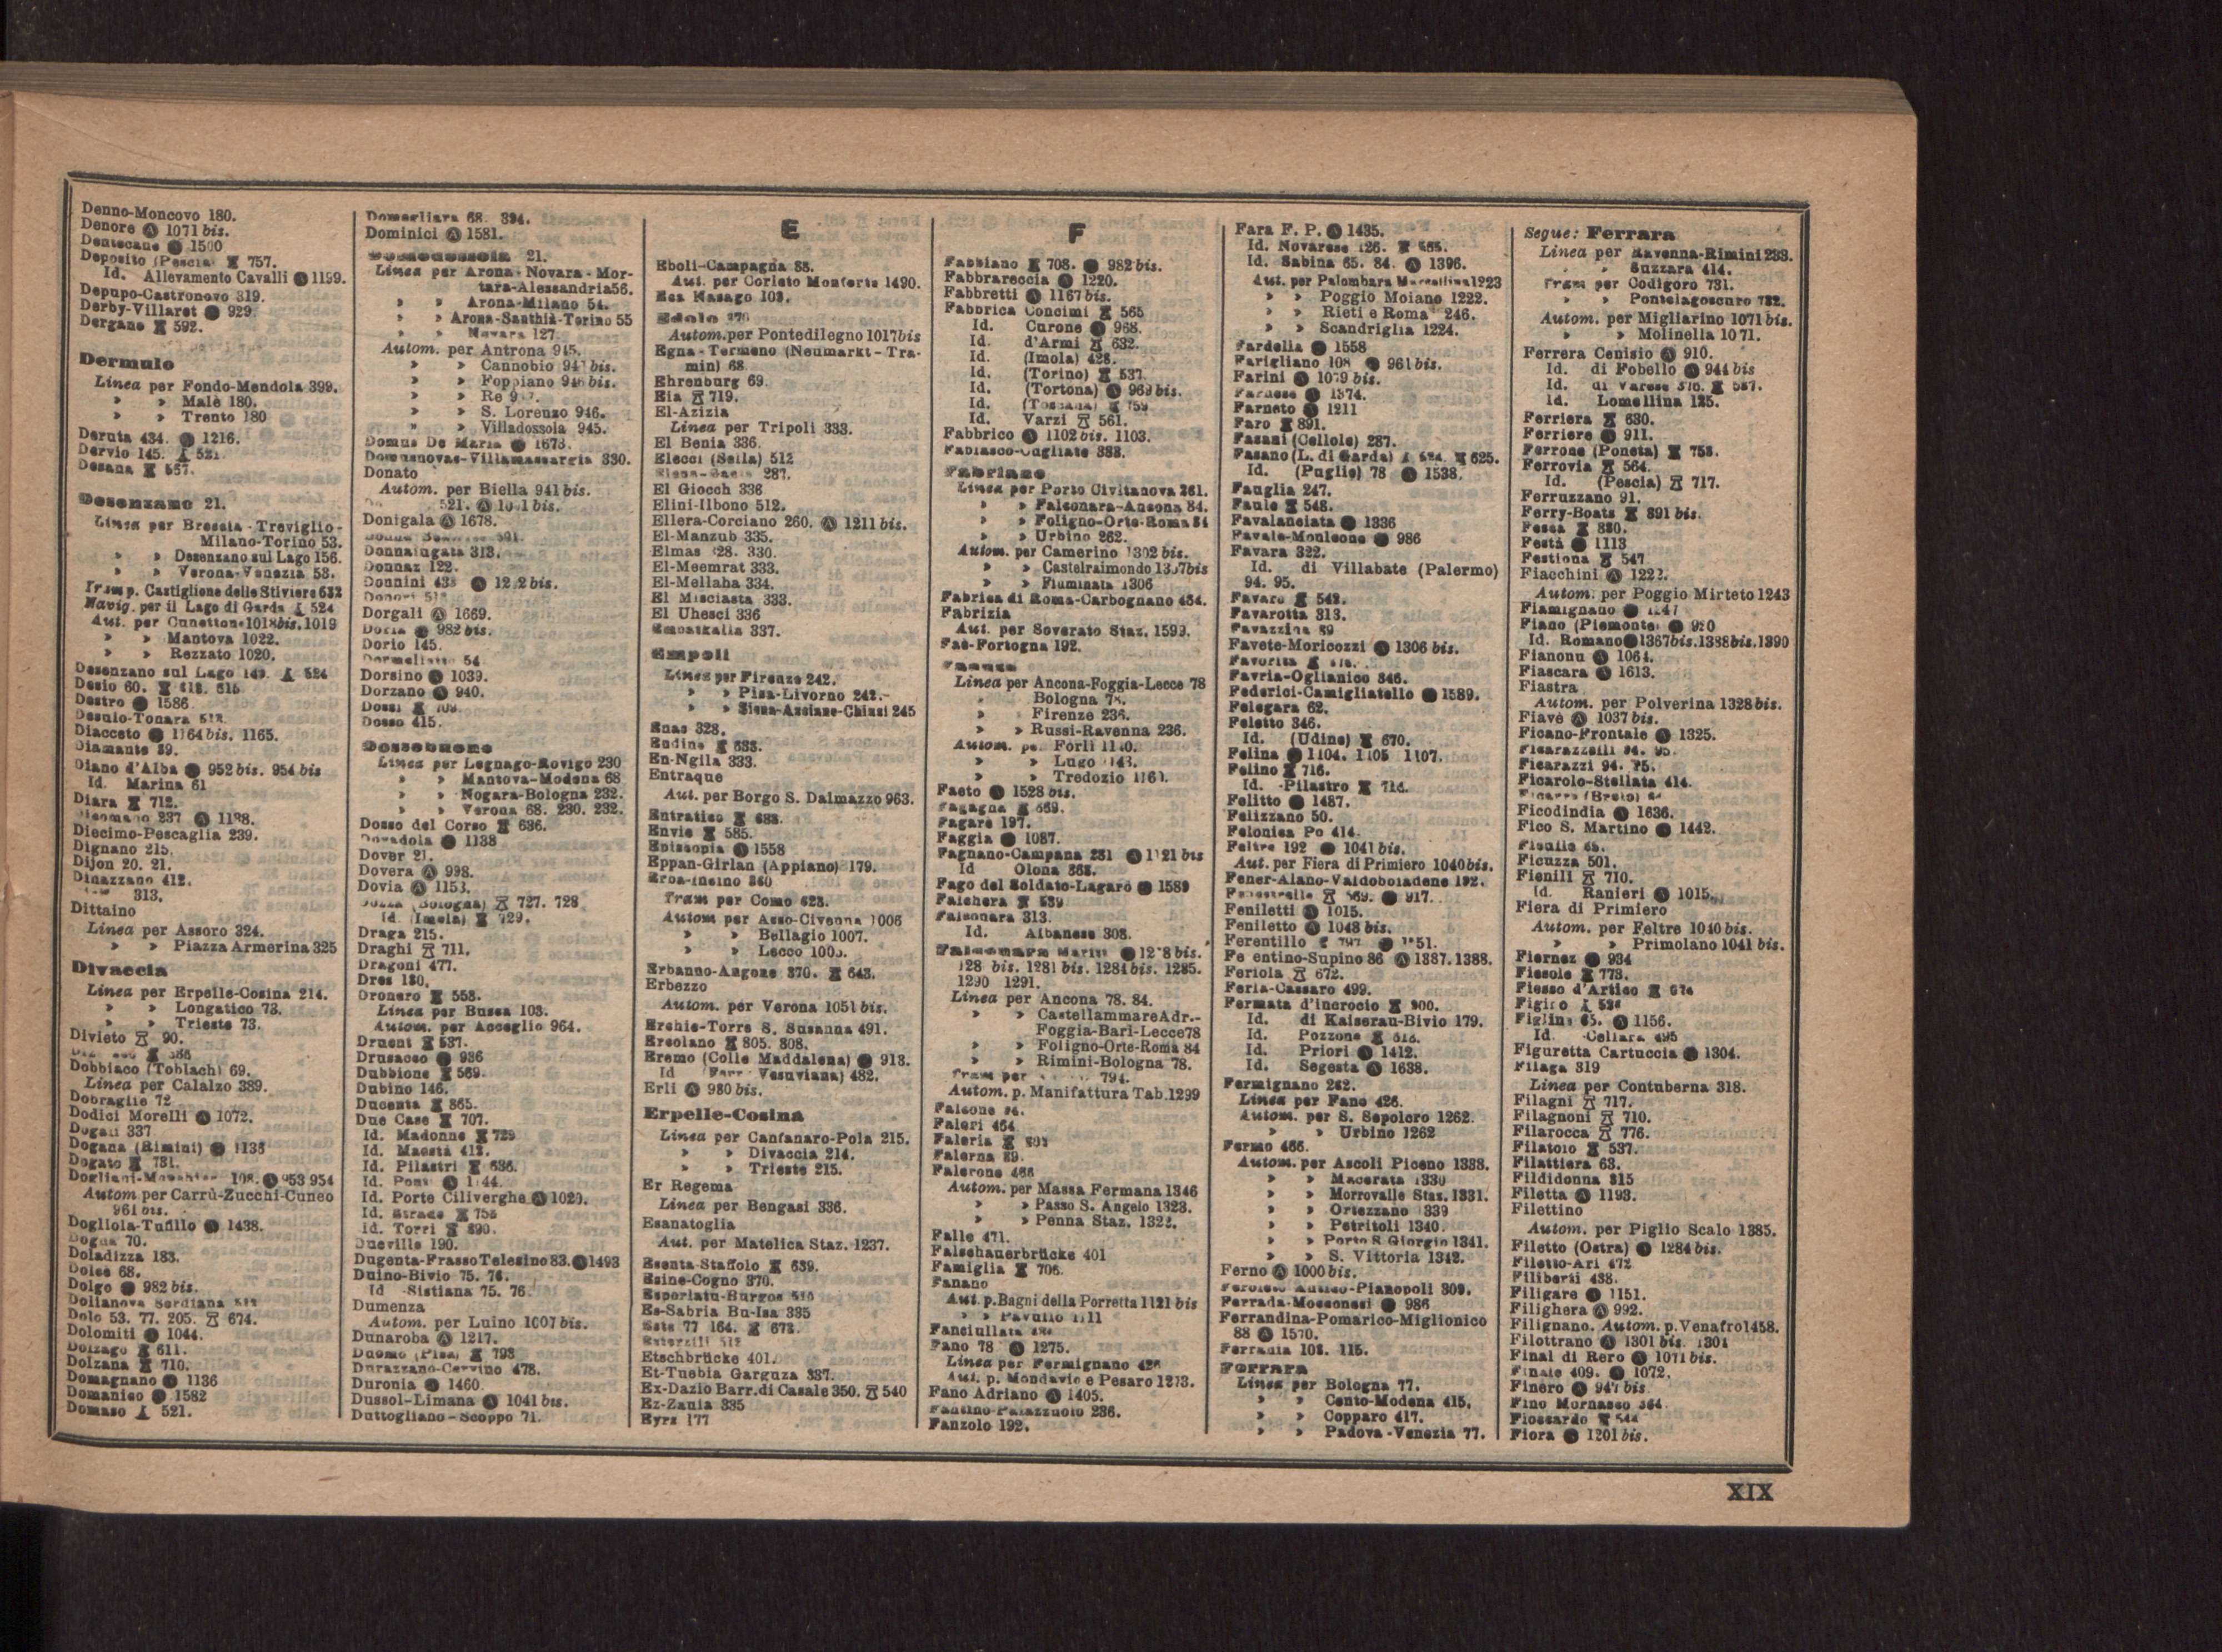 Denno-Moncovo 180.
Denore Ⓐ 1071 bis.
Dentecane
Deposito (Pescia) 757.
Id. Allevamento Cavalli 1199.
Depupo-Castronovo 319.
Derby-Villaret 929.
Dergano 592.
Dermulo
Linea per Fondo-Mendola 399.
» » Malè 180.
» » Trento 180
Deruta 434. 1216.
Dervio 145. 521.
Desana 557.
Desenzano 21.
Linea per Brescia-Treviglio-
Milano-Torino 53.
» » Desenzano sul Lago 156.
» » Verona-Venezia 53.
Tram p. Castiglione delle Stiviere 632
Navig. per il Lago di Garda 524
Aut. per Cunettone 1018bis. 1019
» » Mantova 1022.
» » Rezzato 1020.
Desenzano sul Lago 524
Desio 60.
Destro 1586
Desulo-Tonara
Diacceto 1164bis. 1165.
Diamante 89.
Diano d'Alba 952 bis. 954 bis
Id. Marina 61
Diara 712.
Dicomano 237 Ⓐ
Diecimo-Pescaglia 239.
Dignano 215.
Dijon 20. 21.
Dinazzano 412.
313.
Dittaino
Linea per Assoro 324.
» » Piazza Armerina 325
Divaccia
Linea per Erpelle-Cosina 214.
» » Longatico 73.
» » Trieste 73.
Divieto 90.
Dobbiaco (Toblach) 69.
Linea per Calalzo 389.
Dobraglie 72
Dodici Morelli Ⓐ 1072.
Dogali 337
Dogana (Rimini) 1135
Dogato 731.
Dogliani-Monchiero
Autom per Carrù-Zucchi-Cuneo
961 bis.
Dogliola-Tufillo 1438.
Dogna 70.
Doladizza 183.
Dolcè 68.
Dolgo 982 bis.
Dolianova Serdiana
Dolo 53. 77. 205. 674.
Dolomiti 1044.
Dolzago 611.
Dolzana 710.
Domagnano 1136
Domanico 1582
Domaso 521.
Domegliara 68. 394.
Dominici Ⓐ 1581.
Domodossola 21.
Linea per Arona-Novara-Mor-
tara-Alessandria 56.
» » Arona-Milano 54.
» » Arona-Santhià-Torino 55
» » Novara 127
Autom. per Antrona 945.
» » Cannobio bis.
» » Foppiano bis.
» » Re
» » S. Lorenzo 946.
» » Villadossola 945.
Domus De Maria 1673.
Domusnovas-Villamassargia 330.
Donato
Autom. per Biella 941 bis.
521. Ⓐ bis.
Donigala Ⓐ 1678.
Donnafugata 313.
Donnaz 122.
Donnini bis.
Donori
Dorgali Ⓐ 1669.
Doria 982 bis.
Dorio 145.
Dormelletto 54
Dorsino 1039.
Dorzano 940.
Dossi
Dosso 415.
Dossobuono
Linea per Legnago-Rovigo 230
» » Mantova-Modena 68
» » Nogara-Bologna 232.
» » Verona 68. 230. 232.
Dosso del Corso 636.
Dovadola 1138
Dover 21.
Dovera Ⓐ 998.
Dovia Ⓐ 1153.
Dozza (Bologna) 727. 728
Id. (Imola) 729.
Draga 215.
Draghi 711.
Dragoni 477.
Dres 180.
Dronero 553.
Linea per Busca 103.
Autom. per Acceglio 964.
Druent 537.
Drusacco 936
Dubbione 569.
Dubino 146.
Ducenta 865.
Due Case 707.
Id. Madonne 729
Id. Maestà 412.
Id. Pilastri 636.
Id. Ponti
Id. Porte Ciliverghe Ⓐ 1020.
Id. Strade
Id. Torri
Dueville 190.
Dugenta-Frasso Telesino 83. 1493
Duino-Bivio 75. 76.
Id. Sistiana 75. 76.
Dumenza
Autom. per Luino 1007 bis.
Dunaroba Ⓐ 1217.
Duomo (Pisa) 793
Durazzano-Cervino 478.
Duronia 1460.
Dussol-Limana Ⓐ 1041 bis.
Duttogliano-Scoppo 71.
E
Eboli-Campagna 88.
Aut. per Corleto Monforte 1490.
Eca Nasago 103.
Edolo
Autom. per Pontedilegno 1017bis
Egna-Termeno (Neumarkt-Tra-
min) 68
Ehrenburg 69.
Eia 719.
El-Azizia
Linea per Tripoli 333.
El Benia 336.
Elecci (Sella) 512
287.
El Giocch 336
Elini-Ilbono 512.
Ellera-Corciano 260. Ⓐ 1211 bis.
El-Manzub 335.
Elmas 328. 330.
El-Meemrat 333.
El-Mellaha 334.
El Misciasta 333.
El Uhesci 336
337.
Empoli
Linea per Firenze 242.
» » Pisa-Livorno 242.
» » Siena-Asciano-Chiusi 245
Enas 328.
Endine 633.
En-Ngila 333.
Entraque
Aut. per Borgo S. Dalmazzo 963.
Entratico 633.
Envie 585.
Episcopia Ⓐ 1558
Eppan-Girlan (Appiano) 179.
Erba-Incino 360
Tram per Como 623.
Autom per Asso-Civenna 1006
» » Bellagio 1007.
» » Lecco 1005.
Erbanno-Angone 370. 643.
Erbezzo
Autom. per Verona 1051 bis.
Erchie-Torre S. Susanna 491.
Ercolano 805. 808.
Eremo (Colle Maddalena) 913.
Id (Ferr. Vesuviana) 482.
Erli Ⓐ 980 bis.
Erpelle-Cosina
Linea per Canfanaro-Pola 215.
» » Divaccia 214.
» » Trieste 215.
Er Regema
Linea per Bengasi 336.
Esanatoglia
Aut. per Matelica Staz. 1237.
Esenta-Staffolo 639.
Esine-Cogno 370.
Esperlatu-Burgos 510
Es-Sabria Bu-Isa 335
Este 77 164. 673.
Esterzili 512
Etschbrücke 401.
Et-Tuebia Garguza 337.
Ex-Dazio Barr. di Casale 350. 540
Ez-Zauia 335
Eyrs 177
F
Fabbiano 708. 982 bis.
Fabbrareccia 1220.
Fabbretti Ⓐ 1167 bis.
Fabbrica Concimi 565
Id. Curone 968.
Id. d'Armi 632.
Id. (Imola) 428.
Id. (Torino) 537.
Id. (Tortona) 969 bis.
Id. (Toscana)
Id. Varzi 561.
Fabbrico Ⓐ 1102 bis. 1103.
Fabiasco-Cugliate 388.
Fabriano
Linea per Porto Civitanova 261.
» » Falconara-Ancona 84.
» » Foligno-Orte-Roma 84
» » Urbino 262.
Autom. per Camerino 1302 bis.
» » Castelraimondo bis
» » Fiuminata 1306
Fabrica di Roma-Carbognano 464.
Fabrizia
Aut. per Soverato Staz. 1599.
Fae-Fortogna 192.
Faenza
Linea per Ancona-Foggia-Lecce 78
» Bologna 78.
» Firenze 236.
» » Russi-Ravenna 236.
Autom. per Forlì 1140.
» » Lugo
» » Tredozio
Faeto 1528 bis.
Fagagna 669.
Fagarè 197.
Faggia 1087.
Fagnano-Campana 231 Ⓐ 1121 bis
Id Olona 368.
Fago del Soldato-Lagarò 1589
Falchera 539
Falconara 313.
Id. Albanese 308.
Falconara Maritt. bis.
1281 bis. 1284bis. 1285.
1290 1291.
Linea per Ancona 78. 84.
» » Castellammare Adr.-
Foggia-Bari-Lecce 78
» » Foligno-Orte-Roma 84
» » Rimini-Bologna 78.
Tram per 794.
Autom. p. Manifattura Tab. 1299
Falcone 94.
Faleri 464.
Faleria
Falerna 89.
Falerone 466
Autom. per Massa Fermana 1346
» » Passo S. Angelo 1323.
» » Penna Staz. 1322.
Falle 471.
Falschauerbrücke 401
Famiglia 706.
Fanano
Aut. p. Bagni della Porretta 1121 bis
» » Pavullo 1111
Fanciullata
Fano 78 1275.
Linea per Fermignano 426
Aut. p. Mondavio e Pesaro 1273.
Fano Adriano Ⓐ 1405.
Fantino-Palazzuolo 236.
Fanzolo 192.
Fara F. P. 1435.
Id. Novarese 126.
Id. Sabina 65. 84. Ⓐ 1396.
Aut. per Palombara Marcellina 1223
» » Poggio Moiano 1222.
» » Rieti e Roma 1246.
» » Scandriglia 1224.
Fardella 1558
Farigliano 108 961 bis.
Farini Ⓐ 1079 bis.
Farnese 1374.
Farneto 1211
Faro 891.
Fasani (Cellole) 287.
Fasano (L. di Garda) 524. 625.
Id. (Puglie) 78 1538.
Fauglia 247.
Faule 548.
Favalanciata 1336
Favale-Monleone 986
Favara 322.
Id. di Villabate (Palermo)
94. 95.
Favaro 542.
Favarotta 313.
Favazzina 89
Favete-Moricozzi 1306 bis.
Favorita
Favria-Oglianico 346.
Federici-Camigliatello 1589.
Felegara 62.
Feletto 346.
Id. (Udine) 670.
Felina 1104. 1105 1107.
Felino 716.
Id. Pilastro 716.
Felitto 1487.
Felizzano 50.
Felonica Po 414.
Feltre 192 1041 bis.
Aut. per Fiera di Primiero 1040bis.
Fener-Alano-Valdobbiadene 192.
Fenestrelle 569. 917.
Feniletti Ⓐ 1015.
Feniletto Ⓐ 1048 bis.
Ferentillo
Ferentino-Supino 86 Ⓐ 1387. 1388.
Feriola 672.
Feria-Cassaro 499.
Fermata d'incrocio 900.
Id. di Kaiserau-Bivio 179.
Id. Pozzone
Id. Priori 1412.
Id. Segesta Ⓐ 1638.
Fermignano 262.
Linea per Fano 426.
Autom. per S. Sepolcro 1262.
» » Urbino 1262
Fermo 466.
Autom. per Ascoli Piceno 1338.
» » Macerata 1330
» » Morrovalle Staz. 1331.
» » Ortezzano 1339
» » Petritoli 1340.
» » Porto S. Giorgio 1341.
» » S. Vittoria 1342.
Ferno Ⓐ 1000 bis.
Feroleto Antico-Pianopoli 309.
Ferrada-Moconesi 986
Ferrandina-Pomarico-Miglionico
88 Ⓐ 1570.
Ferrania 103. 115.
Ferrara
Linea per Bologna 77.
» » Cento-Modena 415.
» » Copparo 417.
» » Padova-Venezia 77.
Segue: Ferrara
Linea per Ravenna-Rimini 233.
» » Suzzara 414.
Tram per Codigoro 731.
» » Pontelagoscuro 732.
Autom. per Migliarino 1071 bis.
» » Molinella 1071.
Ferrera Cenisio Ⓐ 910.
Id. di Fobello 944 bis
Id. di Varese
Id. Lomellina 125.
Ferriera 630.
Ferriere 911.
Ferrone (Poneta) 753.
Ferrovia 564.
Id. (Pescia) 717.
Ferruzzano 91.
Ferry-Boats 891 bis.
Fesca 880.
Festà 1113
Festiona 547
Fiacchini Ⓐ 1222.
Autom. per Poggio Mirteto 1243
Fiamignano
Fiano (Piemonte) 920
Id. Romano 1367bis. 1388bis. 1390
Fianonu Ⓐ 1064.
Fiascara 1613.
Fiastra
Autom. per Polverina 1328 bis.
Fiavè Ⓐ 1037 bis.
Ficano-Frontale Ⓐ 1325.
Ficarazzelli 94. 95.
Ficarazzi 94. 95.
Ficarolo-Stellata 414.
Ficodindia 1636.
Fico S. Martino 1442.
Ficulle 65.
Ficuzza 501.
Fienili 710.
Id. Ranieri Ⓐ 1015.
Fiera di Primiero
Autom. per Feltre 1040 bis.
» » Primolano 1041 bis.
Fiernaz 934
Fiesole 773.
Fiesso d'Artico 674
Figino
Figline 65. Ⓐ 1156.
Id. Cellara 495
Figuretta Cartuccia 1304.
Filaga 319
Linea per Contuberna 318.
Filagni 717.
Filagnoni 710.
Filarocca 776.
Filatoio 537.
Filattiera 63.
Fildidonna 315
Filetta Ⓐ 1193.
Filettino
Autom. per Piglio Scalo 1385.
Filetto (Ostra) 1284 bis.
Filetto-Ari 472
Filiberti 438.
Filigare 1151.
Filighera Ⓐ 992.
Filignano. Autom. p. Venafro 1458.
Filottrano Ⓐ 1301 bis. 1304
Final di Rero Ⓐ 1071 bis.
Finale 409. 1072.
Finero Ⓐ 947 bis
Fino Mornasco 364.
Fiossardo
Fiora 1201 bis.
XIX